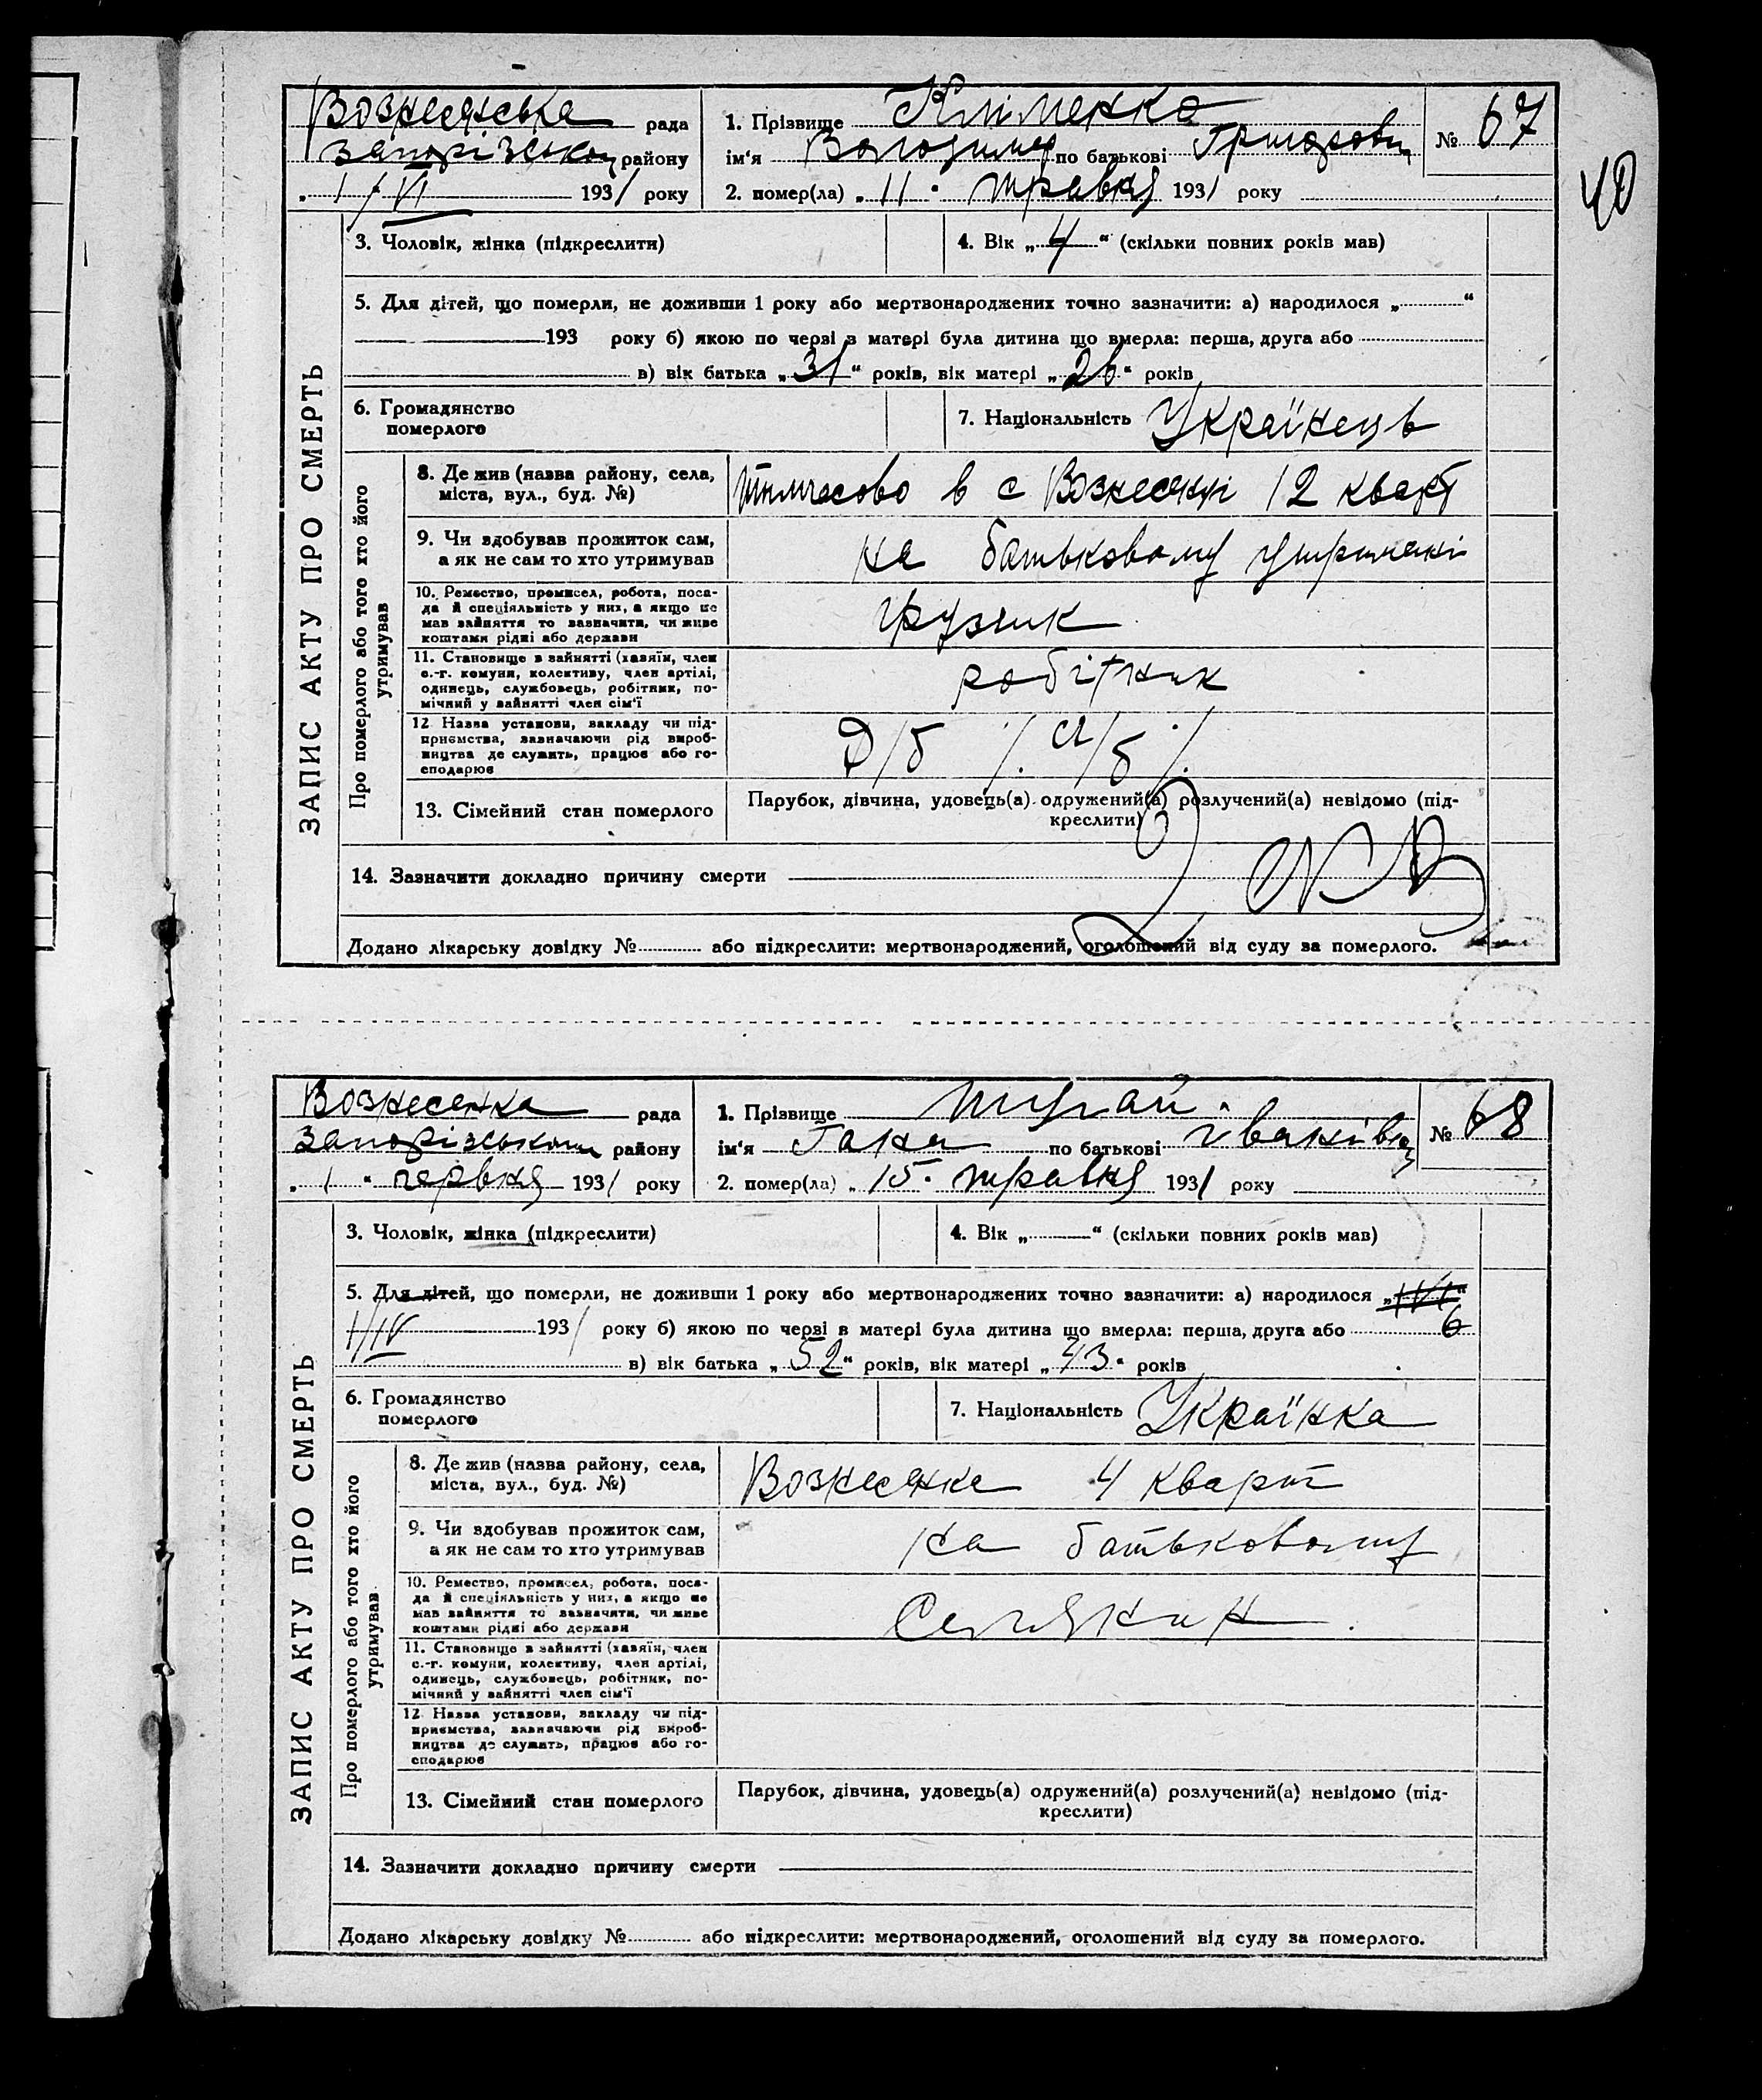 40
Вознесенська рада
Запорізького району
„ 1/VI 1931 року
1. Прізвище Кліменко
ім'я Володимир по батькові Григорович
№ 67
2. помер(ла) „ 11 " травня 1931 року
3. Чоловік, жінка (підкреслити)
4. Вік „ 4 " (скільки повних років мав)
5. Для дітей, що померли, не доживши 1 року або мертвонароджених точно зазначити: а) народилося „ "
193 року б) якою по черзі в матері була дитина що вмерла: перша, друга або
в) вік батька „ 31 " років, вік матері „ 26 " років
6. Громадянство померлого
7. Національність Українець
ЗАПИС АКТУ ПРО СМЕРТЬ
Про померлого або того хто його утримував
8. Де жив (назва району, села,
міста, вул., буд. №)
тимчасово в с Вознесенці 12 кварт
9. Чи здобував прожиток сам,
а як не сам то хто утримував
на батьковому утримані
10. Ремество, промисел, робота, поса-
да й спеціяльність у них, а якщо не
мав зайняття то зазначити, чи живе
коштами рідні або держави
грузчик
11. Становище в зайнятті (хазяїн, член
с.-г. комуни, колективу, член артілі,
одинець, службовець, робітник, по-
мічний у зайнятті член сім'ї
робітник
12 Назва установи, закладу чи під-
приємства, зазначаючи рід вироб-
ництва де служить, працює або го-
сподарює
13. Сімейний стан померлого
Парубок, дівчина, удовець(а) одружений(а) розлучений(а) невідомо (під-
креслити)
14. Зазначити докладно причину смерти
Додано лікарську довідку № або підкреслити: мертвонароджений, оголошений від суду за померлого.
Вознесенка рада
Запорізького району
„ 1 " червня 1931 року
1. Прізвище Шугай
ім'я Ганна по батькові Іванівна
№ 68
2. помер(ла) „ 15 " травня 1931 року
3. Чоловік, жінка (підкреслити)
4. Вік „ " (скільки повних років мав)
5. Для дітей, що померли, не доживши 1 року або мертвонароджених точно зазначити: а) народилося „ "
1/IV 1931 року б) якою по черзі в матері була дитина що вмерла: перша, друга або 6
в) вік батька „ 52 " років, вік матері „ 43 " років
6. Громадянство померлого
7. Національність Українка
ЗАПИС АКТУ ПРО СМЕРТЬ
Про померлого або того хто його утримував
8. Де жив (назва району, села,
міста, вул., буд. №)
Вознесенка 4 кварт
9. Чи здобував прожиток сам,
а як не сам то хто утримував
на батьковому
10. Ремество, промисел, робота, поса-
да й спеціяльність у них, а якщо не
мав зайняття то зазначити, чи живе
коштами рідні або держави
Селянин
11. Становище в зайнятті (хазяїн, член
с.-г. комуни, колективу, член артілі,
одинець, службовець, робітник, по-
мічний у зайнятті член сім'ї
12 Назва установи, закладу чи під-
приємства, зазначаючи рід вироб-
ництва де служить, працює або го-
сподарює
13. Сімейний стан померлого
Парубок, дівчина, удовець(а) одружений(а) розлучений(а) невідомо (під-
креслити)
14. Зазначити докладно причину смерти
Додано лікарську довідку № або підкреслити: мертвонароджений, оголошений від суду за померлого.